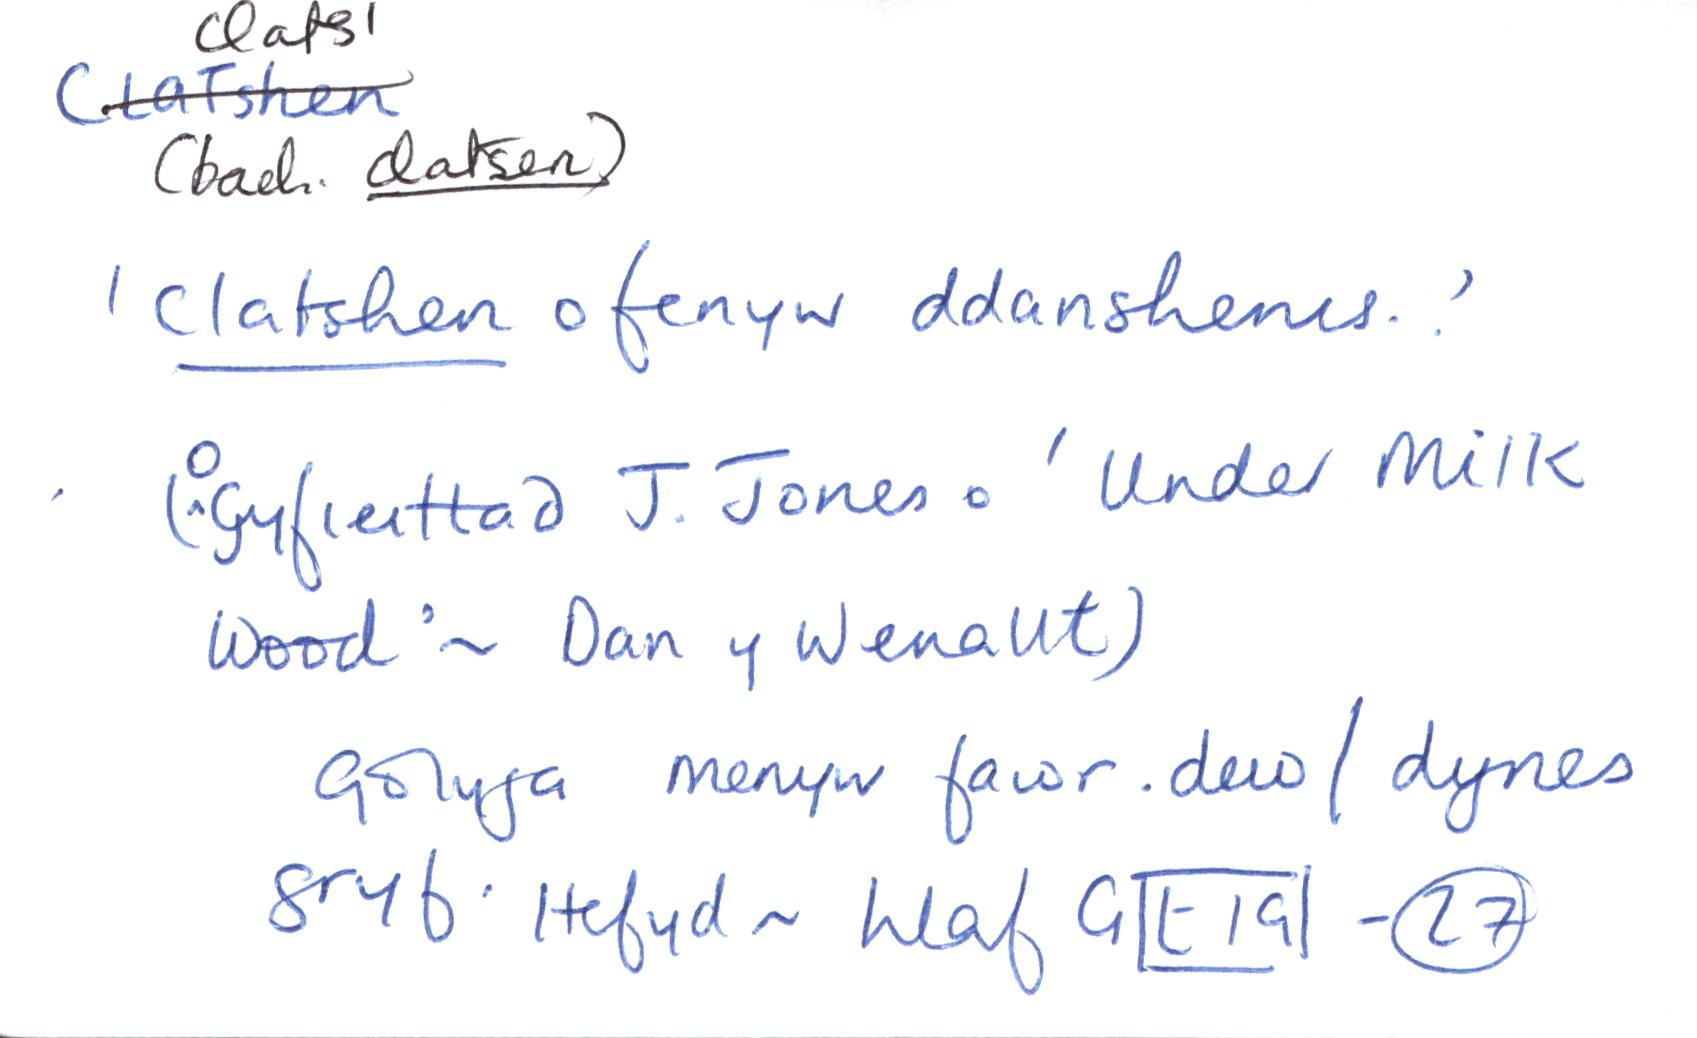 clatsi
Clatshen
(bach. clatsen)
'Clatshen o fenyw ddansherus.'
(o Gyfieithad J. Jones o 'Under Milk
Wood' ~ Dan y Wenallt)
Golyga menyw fawr. dew / dynes
gryf. Hefyd ~ hlaf G E I G - 27